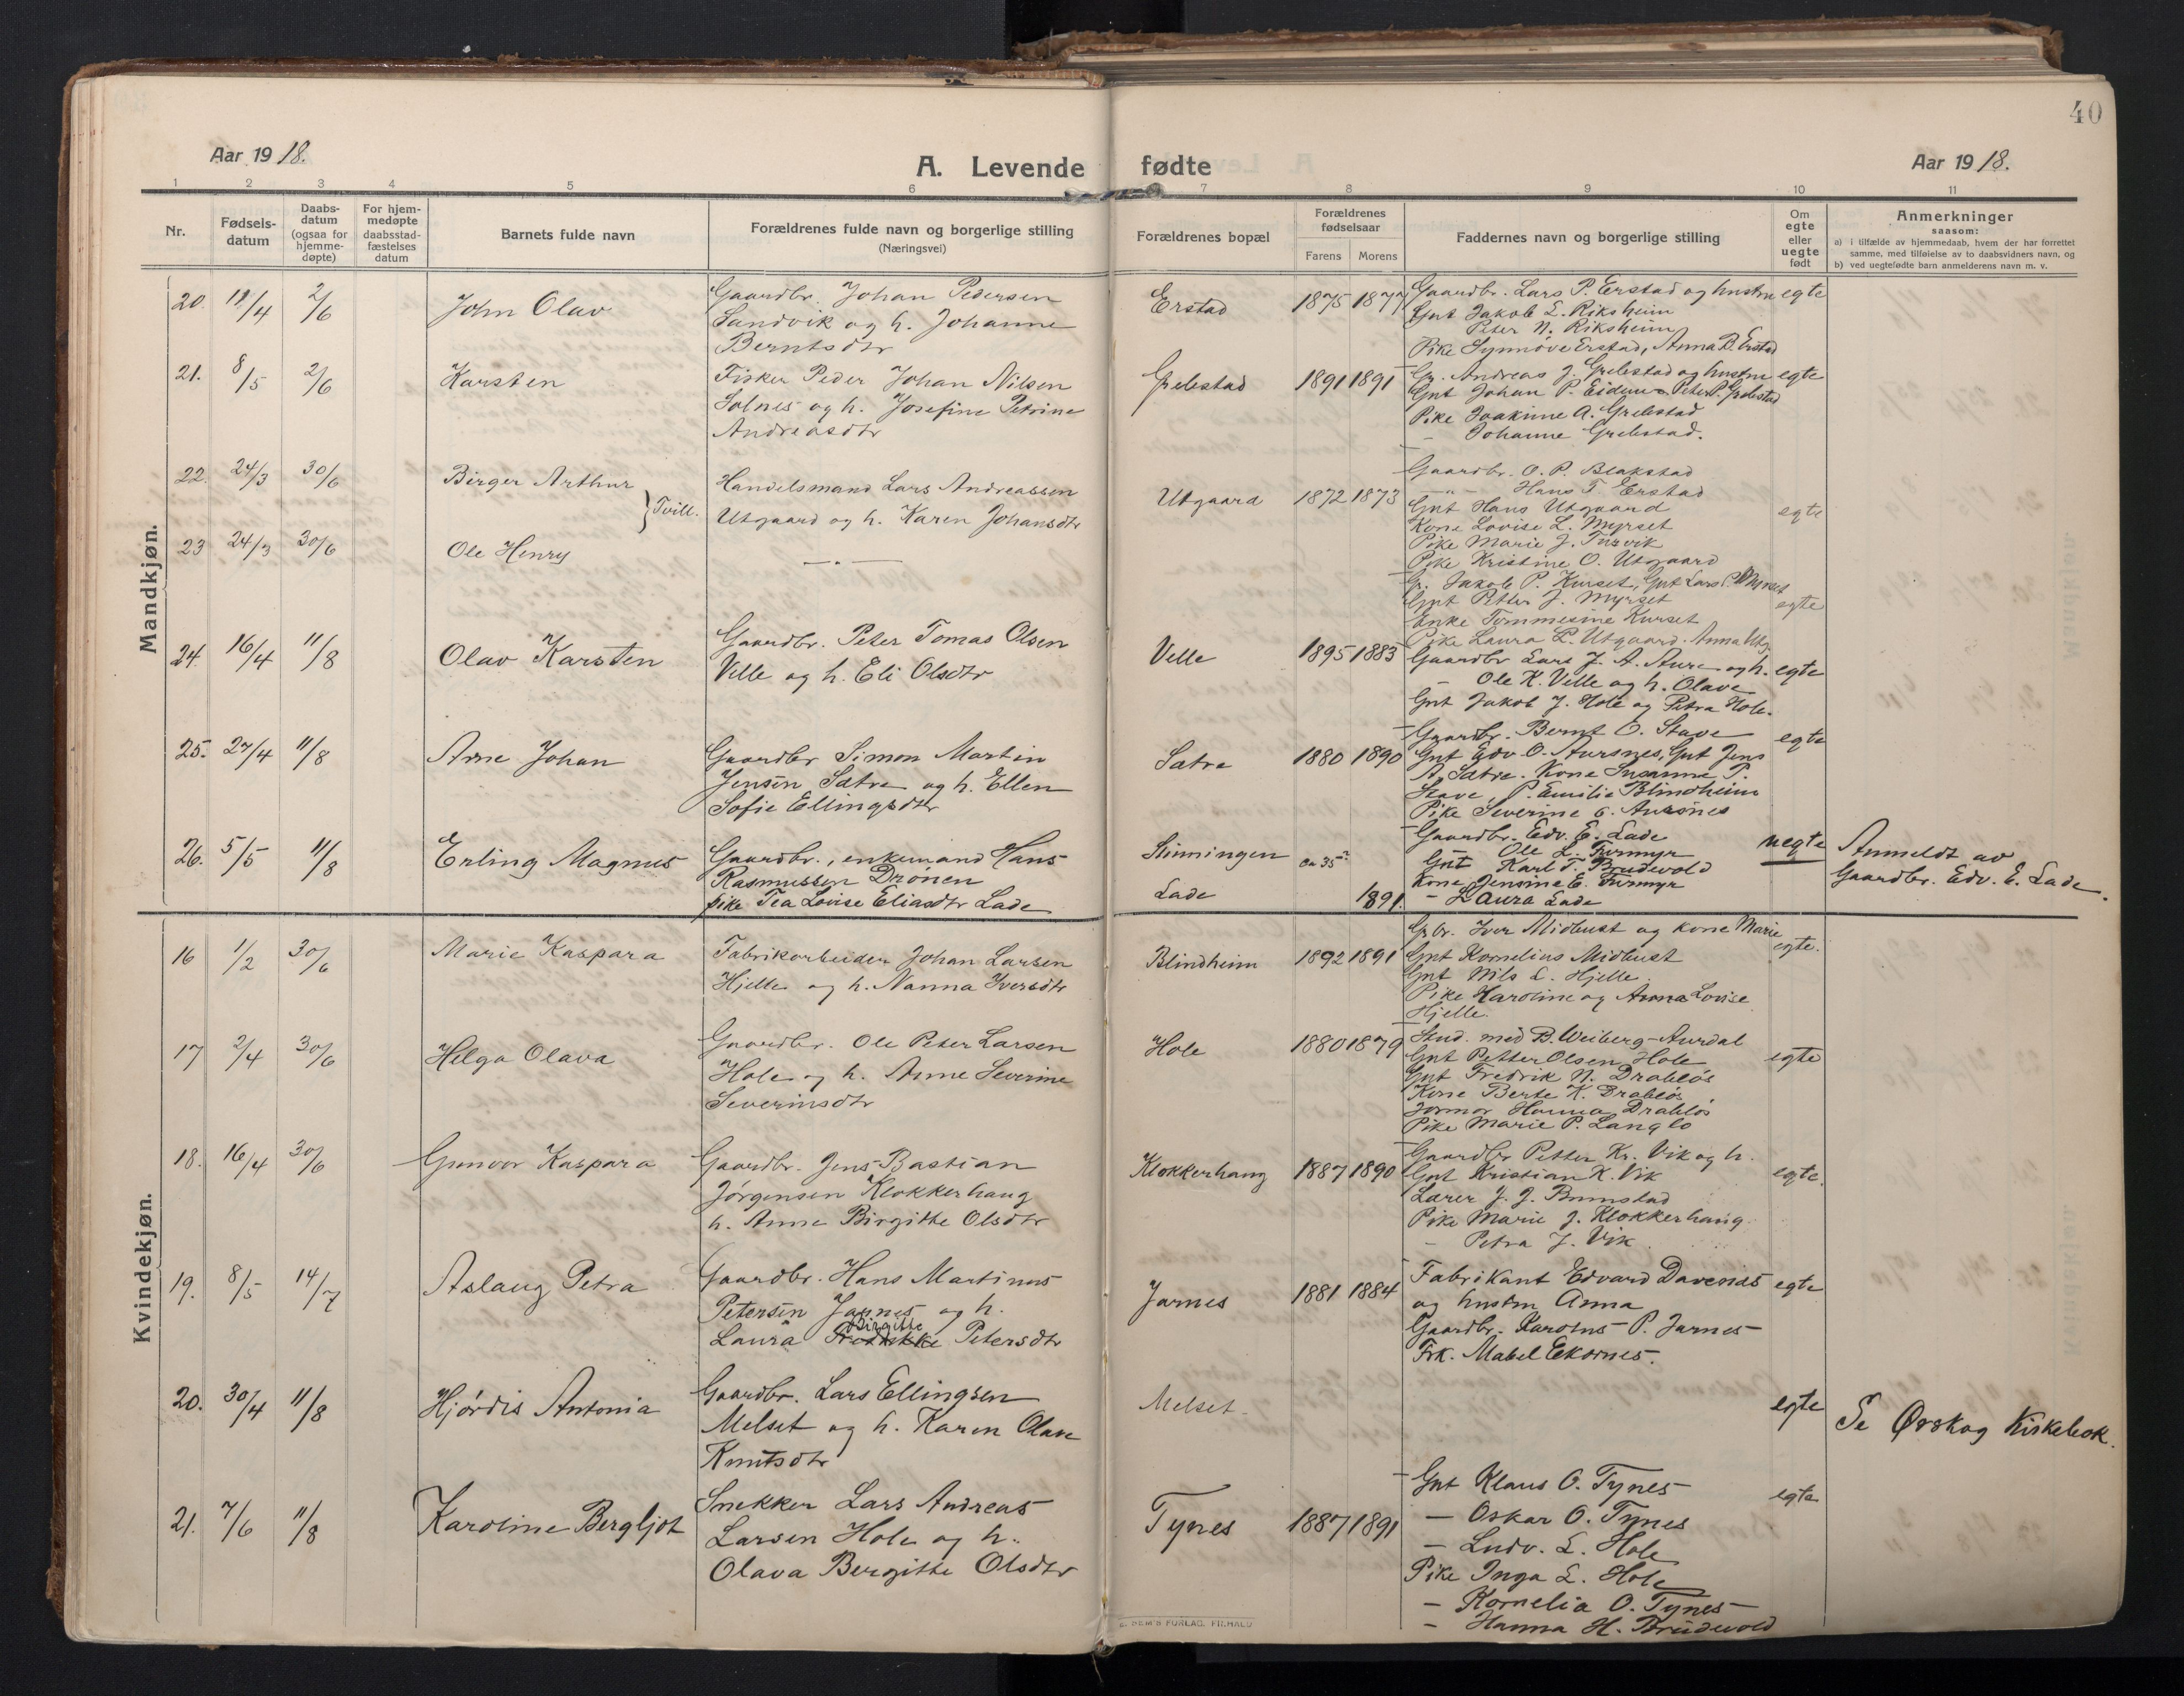 40
Aar 1918.
A. Levende fødte
Aar 1918.
1 2 3 4 5 6 7 8 9 10 11
Nr.
Fødsels-
datum
Daabs-
datum
(ogsaa for
hjemme-
døpte)
For hjem-
medøpte
daabsstad-
fæstelses
datum
Barnets fulde navn
Forældrenes fulde navn og borgerlige stilling
(Næringsvei)
Forældrenes bopæl
Forældrenes
fødselsaar
Farens Morens
Faddernes navn og borgerlige stilling
Om
egte
eller
uegte
født
Anmerkninger
saasom:
a) i tilfælde av hjemmedaab, hvem der har forrettet
samme, med tilføielse av to daabsvidners navn, og
b) ved uegtefødte barn anmelderens navn m. v.
Mandkjøn.
20. 2/6 John Olav
Gaardbr. Johan Pedersen
Sandvik og h. Johanne
Berntsdtr
Erstad 1875 1877
Gaardbr. Lars P. Erstad og hustru egte
Gut Jakob L. Riksheim
Peter N. Riksheim
Pike Synnøve Erstad, Anna B. Erstad
21. 8/5 2/6 Karsten
Fisker Peder Johan Nilsen
Solnes og h. Josefine Petrine
Andreasdtr
Grebstad 1891 1891
Gr. Andreas J. Grebstad og hustru egte
Gut Johan P. Eidem Peter P. Grebstad
Pike Joakime A. Grebstad
- Johanne Grebstad.
22. 24/3 30/6 Birger Arthur } Tvill.
Handelsmand Lars Andreassen
Utgaard og h. Karen Johansdtr
Utgaard 1872 1873
Gaardbr. O. P. Blakstad
-"- Hans T. Erstad
Gut Hans Utgaard egte
Kone Lovise L. Myrset
Pike Marie J. Turvik
Pike Kristine O. Utgaard
23 24/3 30/6 Ole Henry
—"—
Gr. Jakob P. Kurset, Gut Lars P. Myrset
Gut Petter J. Myrset egte
Enke Tommesine Kurset
Pike Laura L. Utgaard. Anna Utg.
24. 16/4 11/8 Olav Karsten
Gaardbr. Peter Tomas Olsen
Velle og h. Eli Olsdtr
Velle 1895 1883
Gaardbr Lars J. A. Aure og h. egte
- Ole K. Velle og h. Olave
Gut Jakob J. Hole og Petra Hole.
25. 27/4 11/8 Arne Johan
Gaardbr Simon Martin
Jensen Sætre og h. Ellen
Sofie Ellingsdtr
Sætre 1880 1890
Gaardbr. Bernt O. Stave egte
Gut Edv. O. Aursnes, Gut Jens
A. Sætre. Kone Susanne P.
Stave, P. Emilie Blindheim
Pike Severine E. Aursnes
26. 5/5 11/8 Erling Magnus
Gaardbr., enkemand Hans
Rasmussen Drönen
pike Tea Lovise Eliasdtr Lade
Stinningen ca 35
Lade 1891.
Gaardbr. Edv. E. Lade uegte
- Ole L. Furmyr
Gut Karl T. Brudevold
Kone Jensine E. Furmyr
- Laura Lade
Anmeldt av
Gaardbr. Edv. E. Lade.
Kvindekjøn.
16 1/2 30/6 Marie Kaspara
Fabrikarbeider Johan Larsen
Hjelle og h. Nanna Iversdtr
Blindheim 1892 1891
Grbr. Iver Midbust og kone Marie
Gut Kornelius Midbust egte.
Gut Nils L. Hjelle
Pike Karoline og Anna Lovise
Hjelle.
17 2/4 30/6 Helga Olava
Gaardbr. Ole Peter Larsen
Hole og h. Anne Severine
Severinsdtr
Hole 1880 1879
Stud. med B. Weiberg-Aurdal
Gut Petter Olsen Hole egte
Gut Fredrik N. Drabløs
Kone Berte K. Drabløs
Jormor Hanna Drabløs
Pike Marie P. Langlo
18. 16/4 30/6 Gunvor Kaspara
Gaardbr. Jens Bastian
Jörgensen Klokkerhaug
h. Anne Birgitte Olsdtr
Klokkerhaug 1887 1890
Gaardbr Petter Kr. Vik og h.
Gut Kristian K. Vik egte.
Lærer J. J. Brunstad
Pike Marie J. Klokkerhaug
- Petra J. Vik
19. 8/5 14/7 Aslaug Petra
Gaardbr. Hans Martinus
Petersen Jarnes og h.
Birgitte
Laura Petersdtr
Jarnes 1881 1884
Fabrikant Edvard Davenes egte
og hustru Anna
Gaardbr. Karolus P. Jarnes
Frk. Mabel Ekornes.
20. 30/4 11/8 Hjördis Antonia
Gaardbr. Lars Ellingsen
Melset og h. Karen Olave
Knutsdtr
Melset
egte
Se Ørskog Kirkebok.
21. 7/6 11/8 Karoline Bergljot
Snekker Lars Andreas
Larsen Hole og h.
Olava Bergitte Olsdtr
Tynes 1887 1891
Gut Klaus O. Tynes egte
- Oskar O. Tynes
- Ludv. L. Hole
Pike Inga L. Hole
- Kornelia O. Tynes
- Hanna H. Brudevold
SEM'S FORLAG, FR.HALD